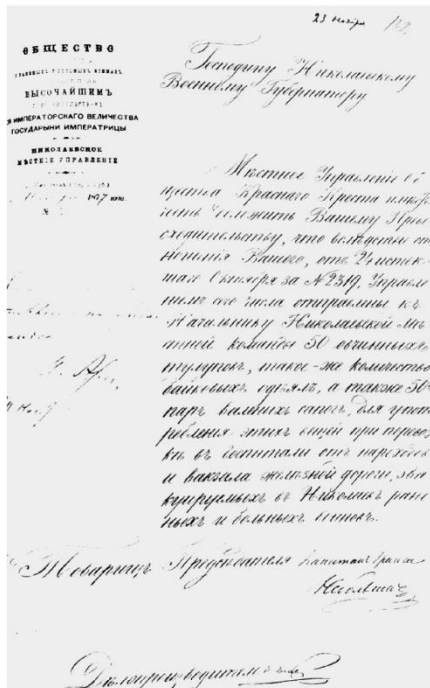 23 Ноября
ОБЩЕСТВО
ВЫСОЧАЙШИМЪ
ИМПЕРАТОРСКАГО ВЕЛИЧЕСТВА
ГОСУДАРЫНИ ИМПЕРАТРИЦЫ
НИКОЛАЕВСКОЕ
МѢСТНОЕ УПРАВЛЕНІЕ
1877
№
Господину Николаевскому
Военному Губернатору
Мѣстное Управленіе Об
щества Краснаго Креста имѣетъ
честь доложить Вашему Прево
сходительству, что вслѣдствіе от
ношенія Вашего, отъ 24 истек
шаго Октября за № 2319, Управле
ніемъ сего числа отправлены къ
Начальнику Николаевской Мѣ
стной команды 50 овчинныхъ
тулуповъ, такое-же количество
байковыхъ одѣялъ, а также 50
паръ валяныхъ сапогъ, для упот
ребленія этихъ вещей при перевоз
кѣ въ госпитали отъ пароходовъ
и вокзала желѣзной дороги, эва
куируемыхъ въ Николаевъ ране
ныхъ и больныхъ воиновъ.
Товарищъ Предсѣдателя Капитанъ 1 ранга
Дѣлопроизводитель